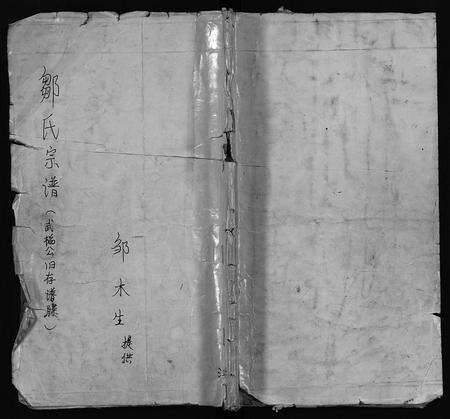 鄒氏宗谱（武揄公旧存谱牍）
邹木生提供